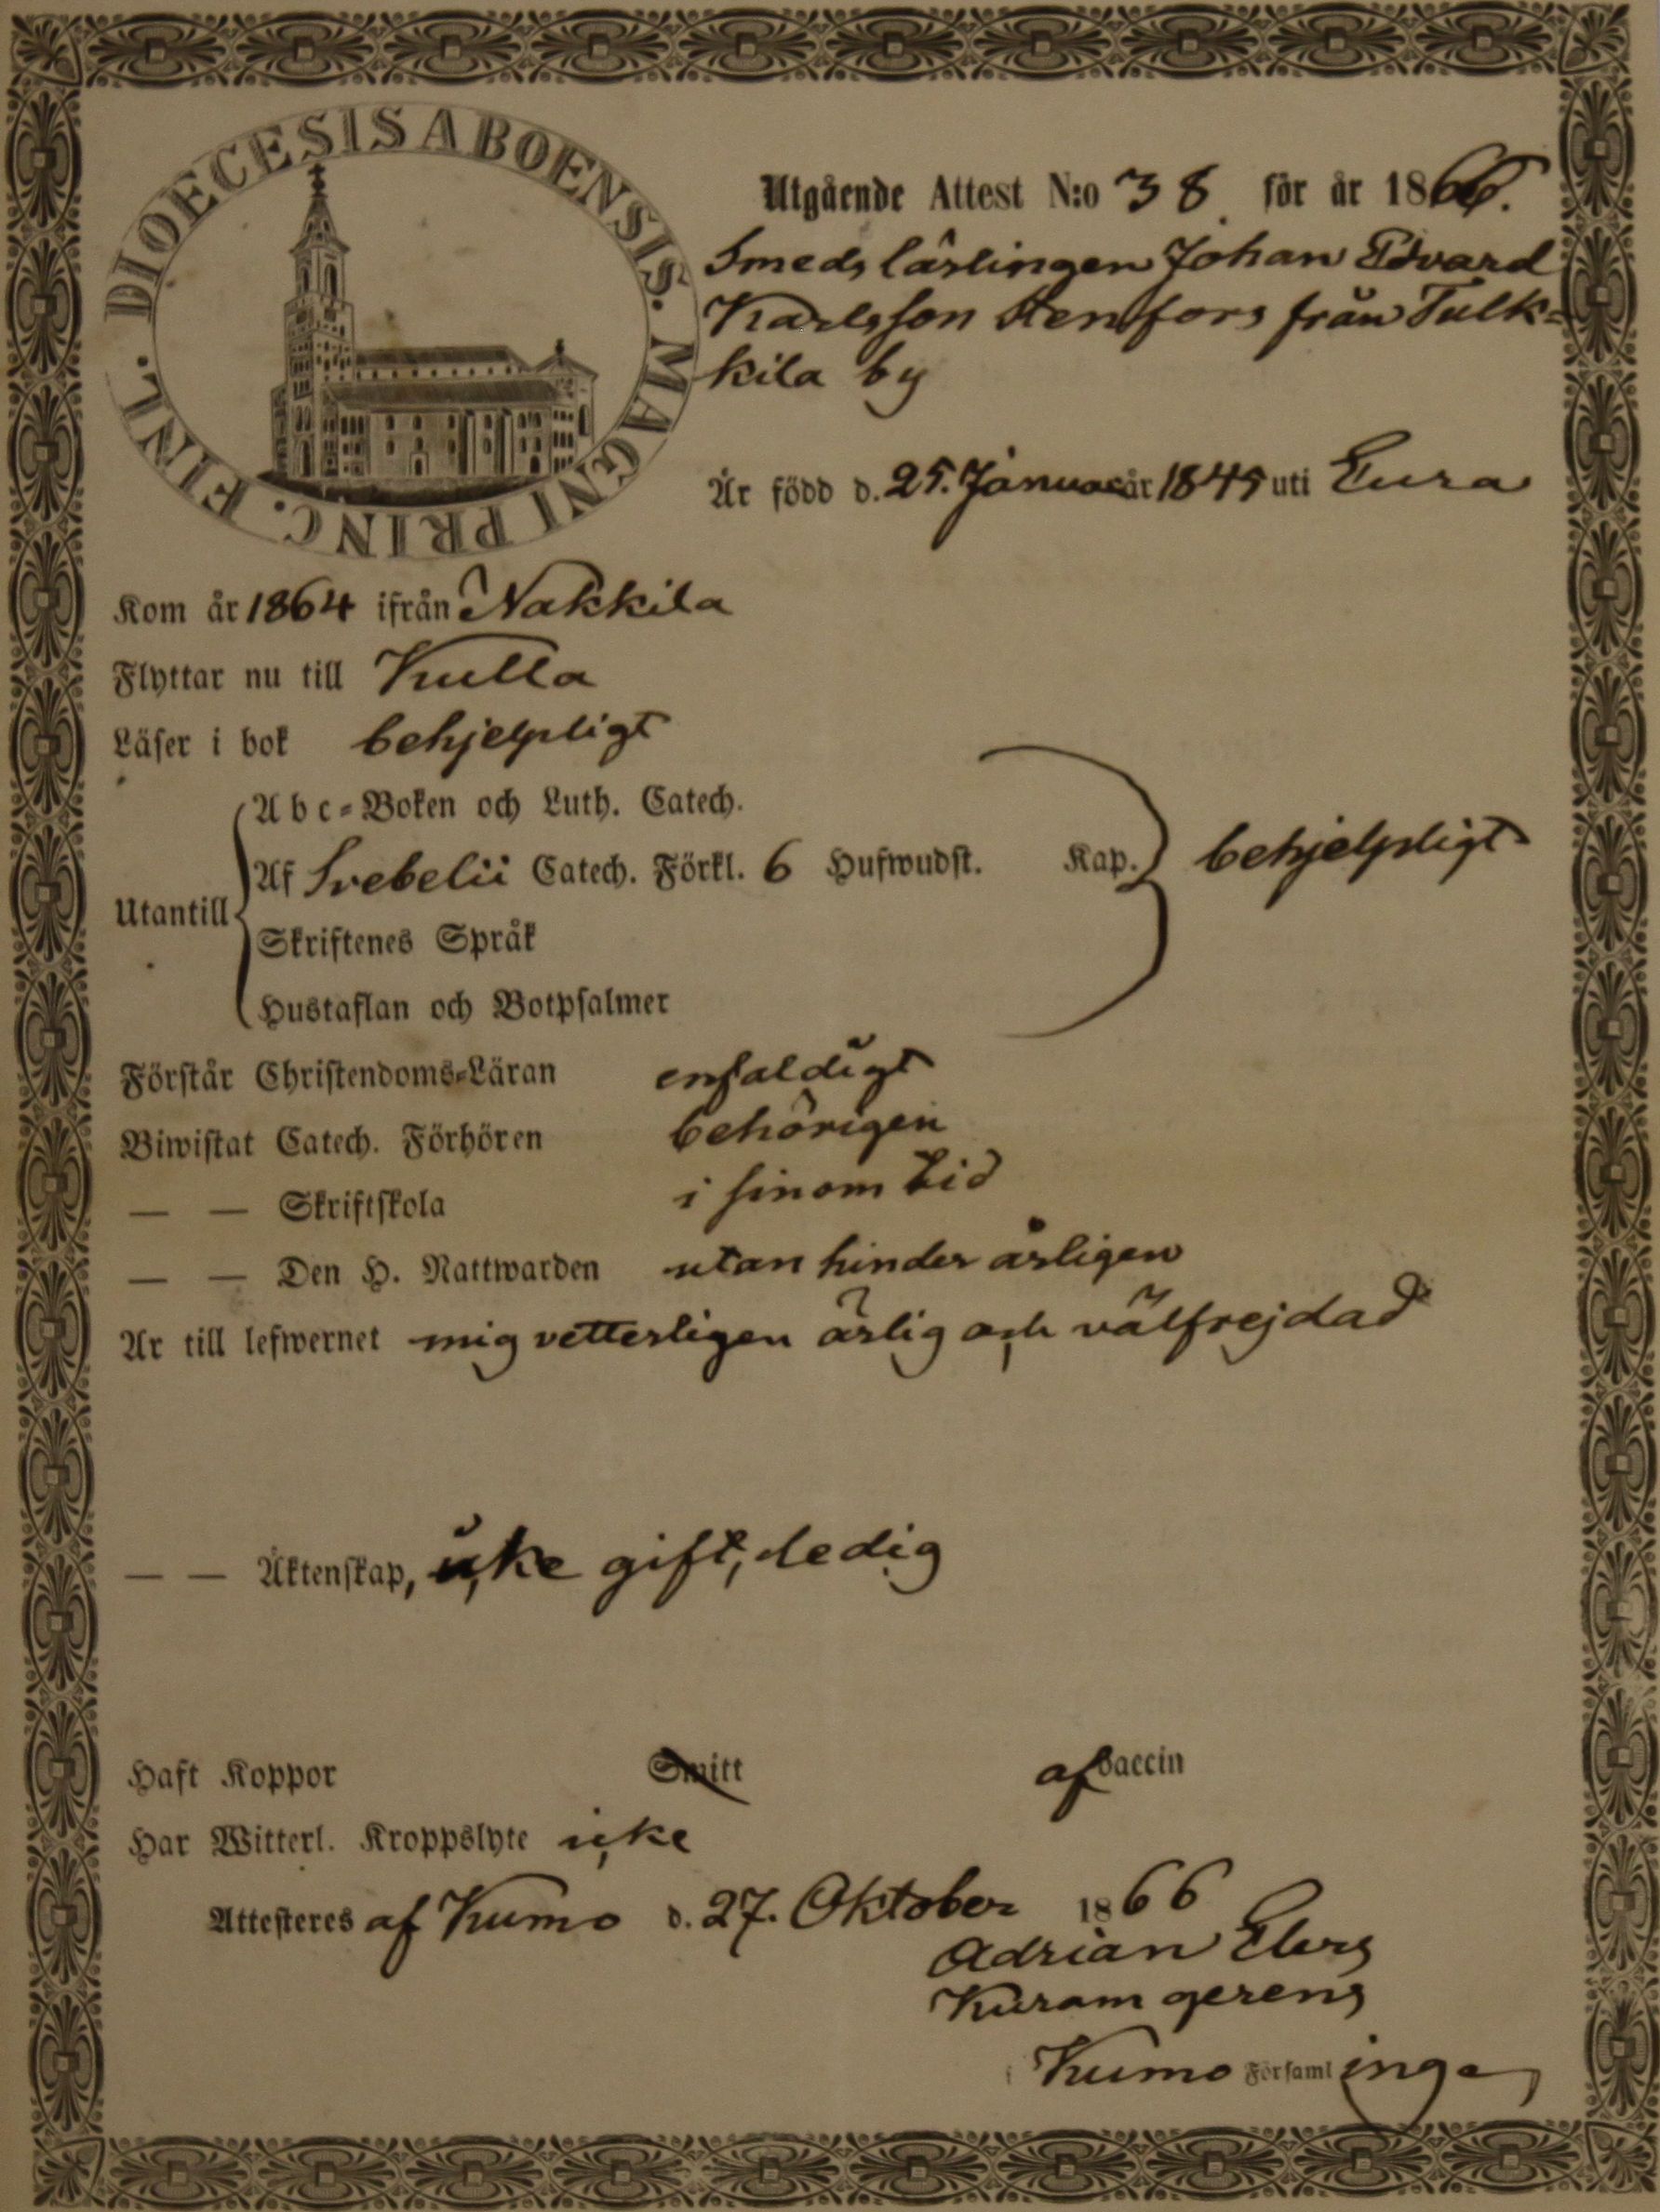 DIOECESIS ABOENSIS. MAGNI PRINC. FINL.
Utgående Attest N:o 38 för år 1866.
Smedslärlingen Johan Edvard
Karlsson Stenfors från Tulk=
kila by
Är född d. 25. Januar år 1845 uti Eura
Kom år 1864 ifrån Nakkila
Flyttar nu till Kulla
Läser i bok behjelpligt
Abc=Boken och Luth. Catech.
Utantill Af Svebelii Catech. Förkl. 6 Hufwudst. Kap. behjelpligt
Skriftenes Språk
Hustaflan och Botpsalmer
Förstår Christendoms=Läran enfaldigt
Biwistat Catech. Förhören behörigen
— — Skriftskola i sinom tid
— — Den H. Nattwarden utan hinder årligen
Är till lefwernet mig vetterligen ärlig och välfrejdad
— — Äktenskap, icke gift, ledig
Haft Koppor Smitt af vaccin
Har Witterl. Kroppslyte icke
Attesteres af Kumo d. 27. Oktober 1866
Adrian Elers
Kuram gerens
i Kumo Församlinge